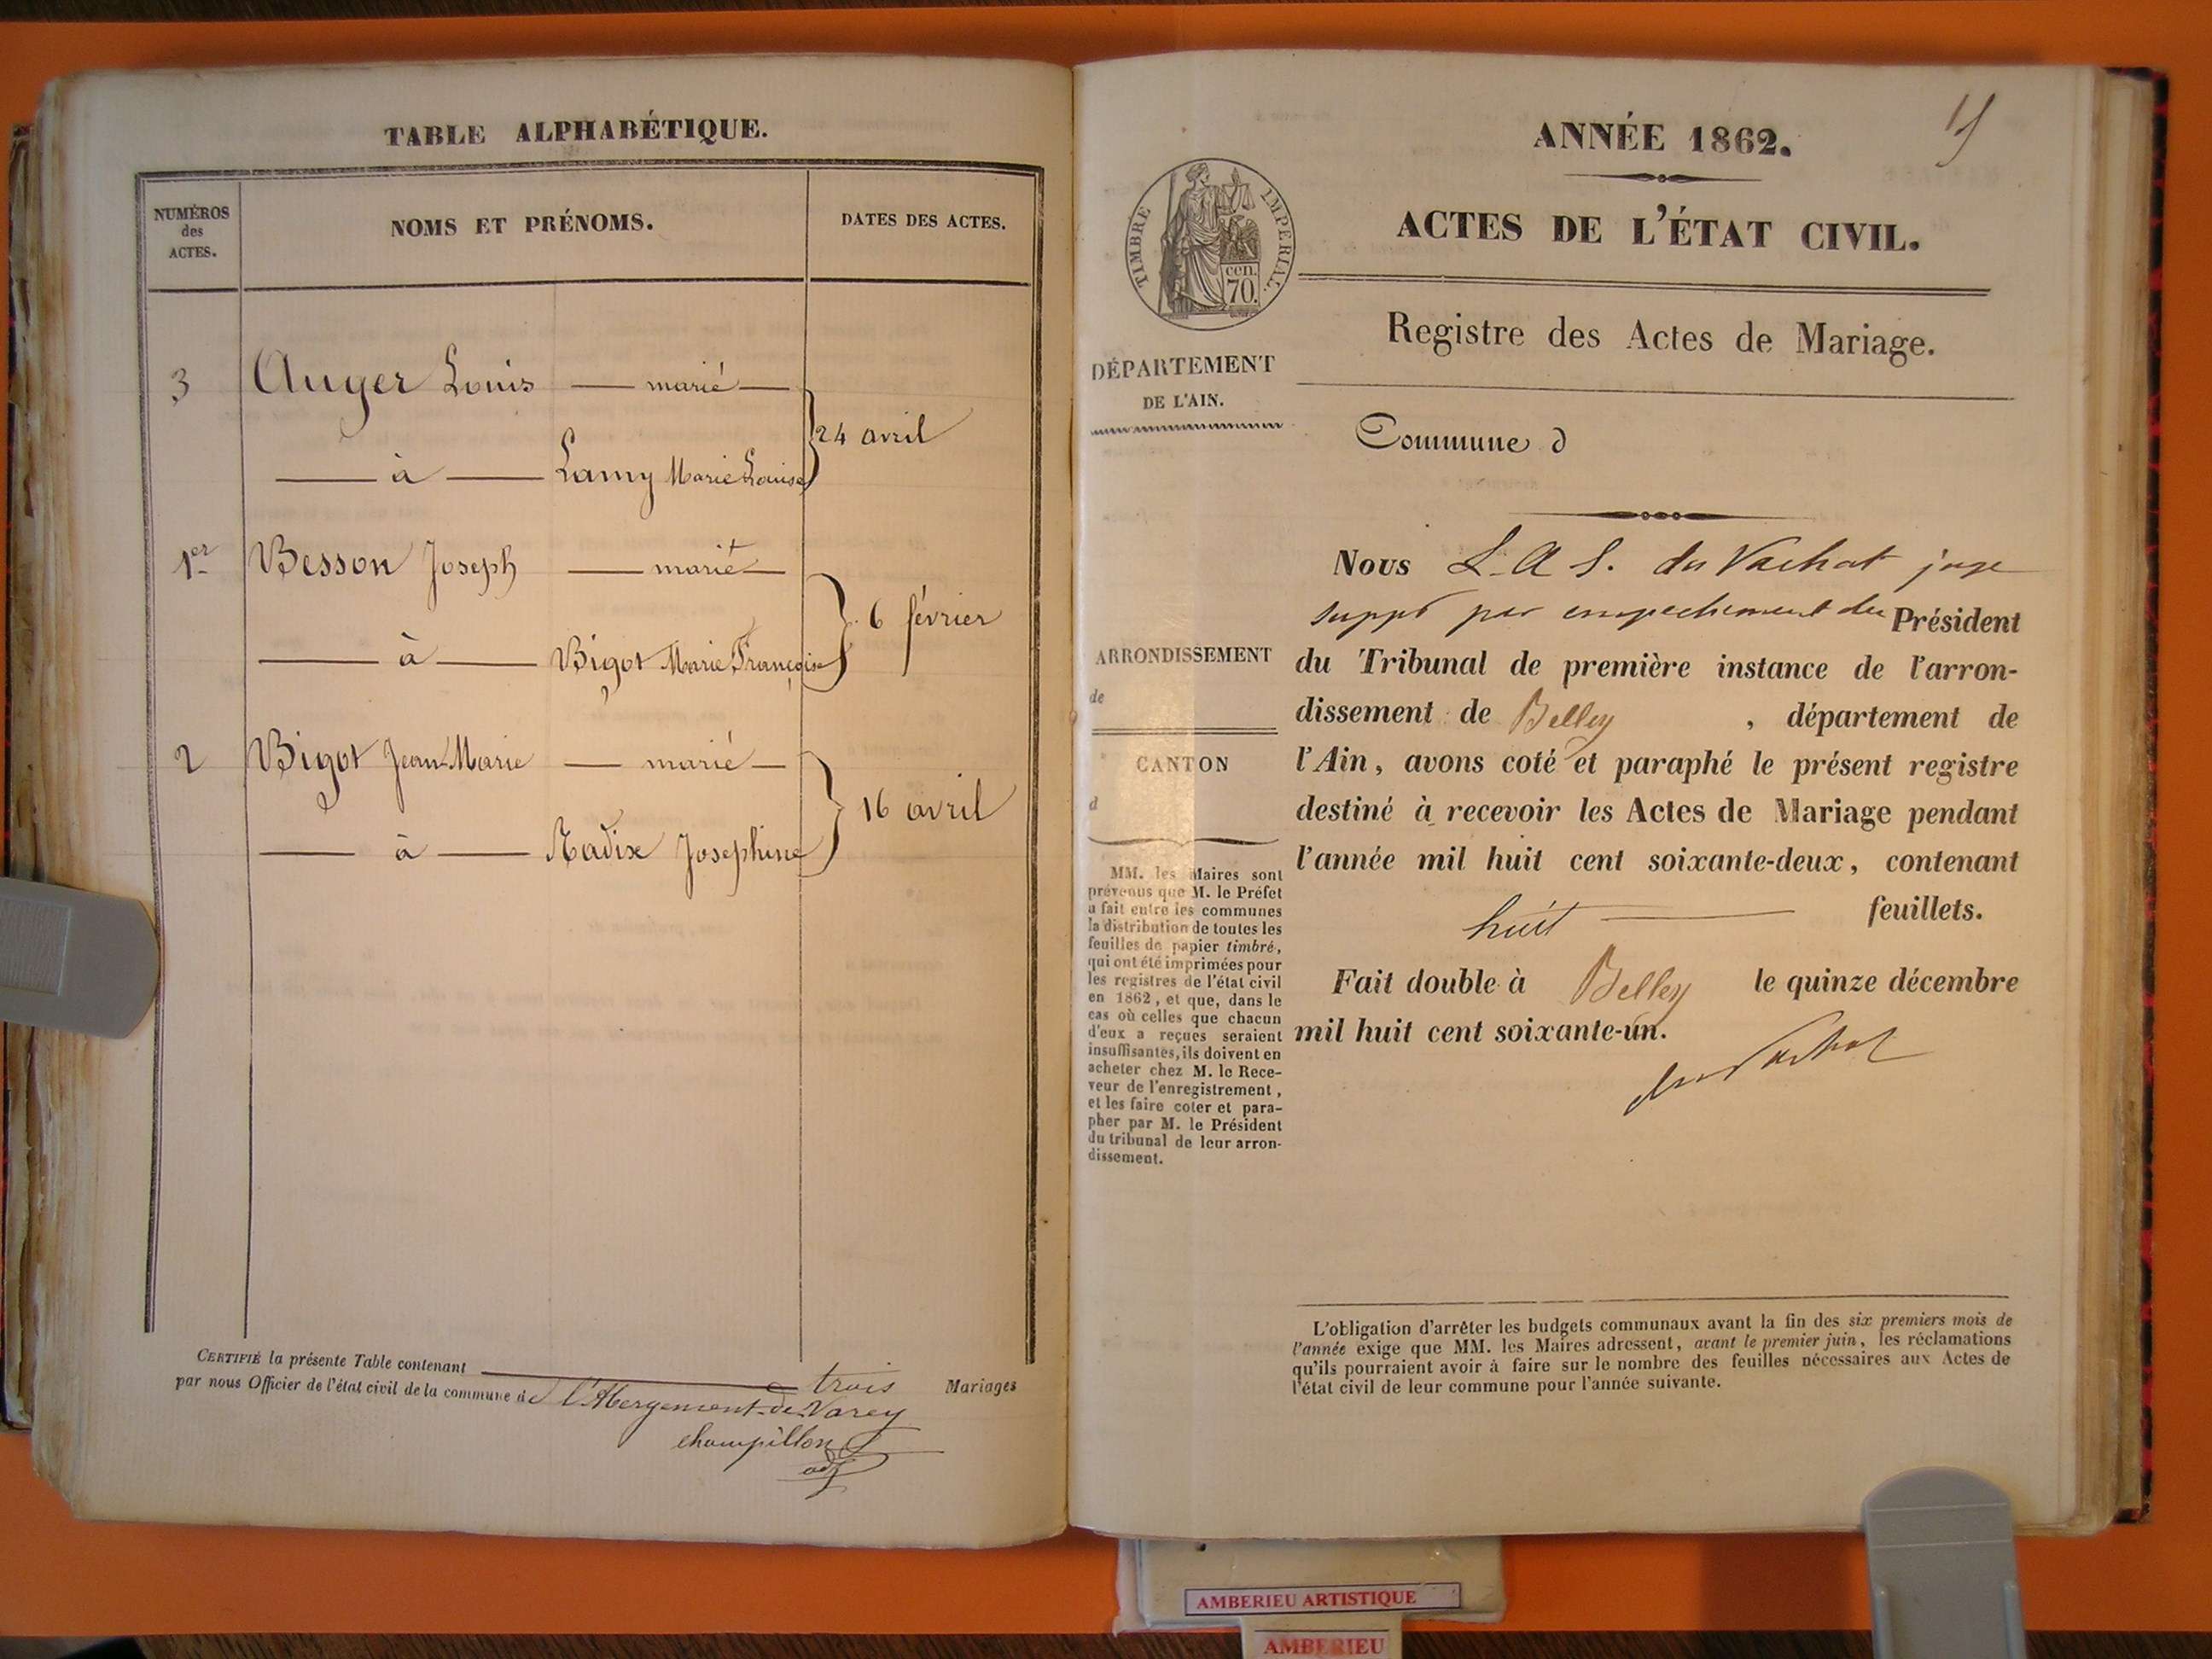 TABLE ALPHABÉTIQUE.
NUMÉROS
des
ACTES.
NOMS ET PRÉNOMS.
DATES DES ACTES.
3 Auger Louis — marié —
24 avril
— à — Lamy Marie Louise
1er Besson Joseph — marié —
6 février
— à — Bigot Marie Françoise
2 Bigot Jean-Marie — marié —
16 avril
— à — Radix Josephine
CERTIFIÉ la présente Table contenant trois Mariages
par nous Officier de l'état civil de la commune de l'Abergement-de-Varey
champillon
adj
15
ANNÉE 1862.
ACTES DE L'ÉTAT CIVIL.
TIMBRE IMPÉRIAL
cen.
70.
Registre des Actes de Mariage.
DÉPARTEMENT
DE L'AIN.
Commune d
ARRONDISSEMENT
de
CANTON
d
MM. les Maires sont
prévenus que M. le Préfet
a fait entre les communes
la distribution de toutes les
feuilles de papier timbré,
qui ont été imprimées pour
les registres de l'état civil
en 1862, et que, dans le
cas où celles que chacun
d'eux a reçues seraient
insuffisantes, ils doivent en
acheter chez M. le Rece-
veur de l'enregistrement,
et les faire coter et para-
pher par M. le Président
du tribunal de leur arron-
dissement.
Nous L. A S. du Vachat juge
suppt par empechement du Président
du Tribunal de première instance de l'arron-
dissement de Belley , département de
l'Ain, avons coté et paraphé le présent registre
destiné à recevoir les Actes de Mariage pendant
l'année mil huit cent soixante-deux, contenant
huit — feuillets.
Fait double à Belley le quinze décembre
mil huit cent soixante-un.
du Vachat
L'obligation d'arrêter les budgets communaux avant la fin des six premiers mois de
l'année exige que MM. les Maires adressent, avant le premier juin, les réclamations
qu'ils pourraient avoir à faire sur le nombre des feuilles nécessaires aux Actes de
l'état civil de leur commune pour l'année suivante.
AMBERIEU ARTISTIQUE
AMBERIEU